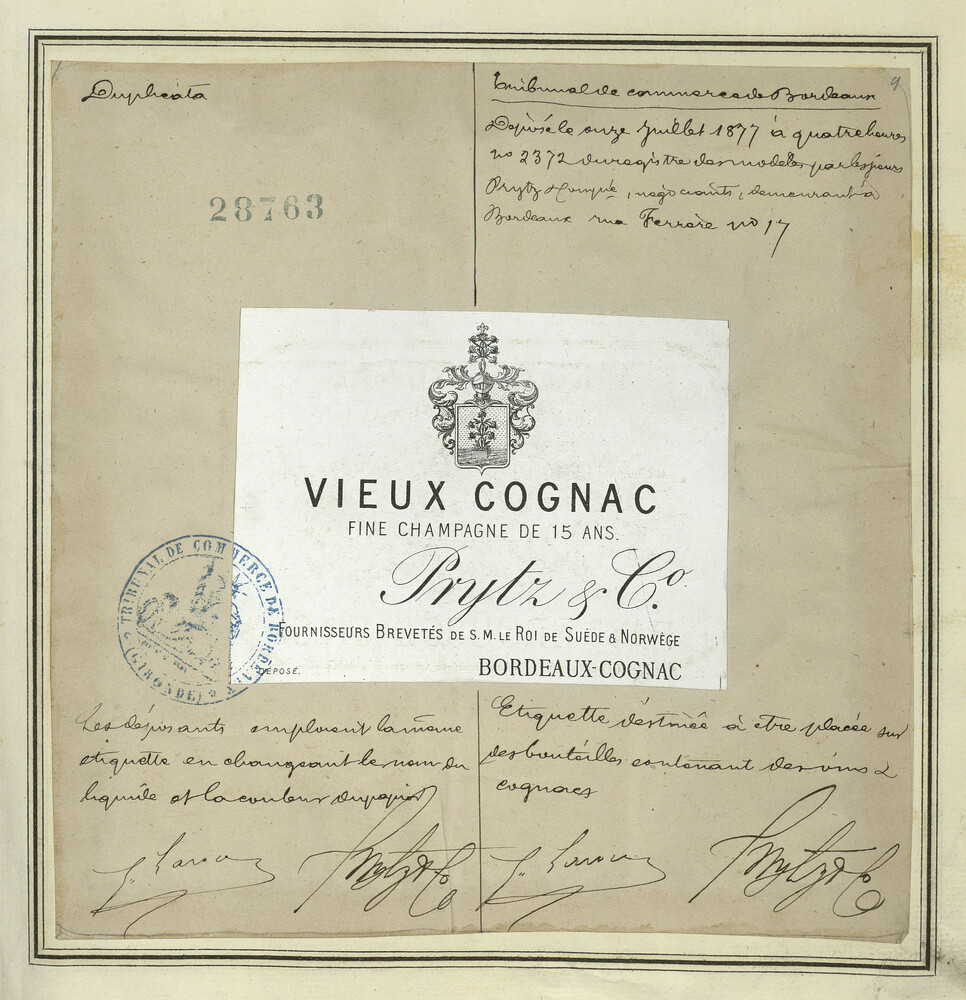 Duplicata
9
Tribunal de commerce de Bordeaux
Déposé le onze Juillet 1877 à quatre heures
no 2372 du registre des modèles par les sieurs
Prytz & Compie, négociants, demeurant à
Bordeaux rue Ferrère no 17
28763
VIEUX COGNAC
FINE CHAMPAGNE DE 15 ANS.
Prytz & Co.
FOURNISSEURS BREVETÉS DE S. M. LE ROI DE SUÈDE & NORWÈGE
BORDEAUX-COGNAC
DÉPOSÉ.
TRIBUNAL DE COMMERCE DE BORDEAUX
(GIRONDE)
Les déposants emploient la même
etiquette en changeant le nom du
liquide et la couleur du papier
Etiquette destinée à etre placée sur
des bouteilles contenant des vins &
cognacs
Prytz & Co
Prytz & Co